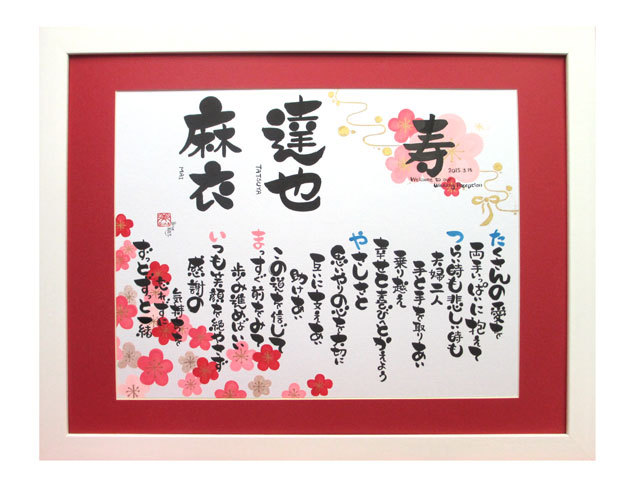 寿
2015.3.15
Welcome to our
Wedding Reception
達也
TATSUYA
麻衣
MAI
たくさんの愛を
両手いっぱいに抱えて
つらい時も悲しい時も
夫婦二人
手と手を取りあい
乗り越え
幸せと喜びとかえよう
やさしさと
思いやりの心を大切に
互いに支えあい
助けあい
この道を信じて
まっすぐ前をみて
歩み進めばいい
いつも笑顔を絶やさず
感謝の
気持ちを
忘れずに
ずっとずっと一緒